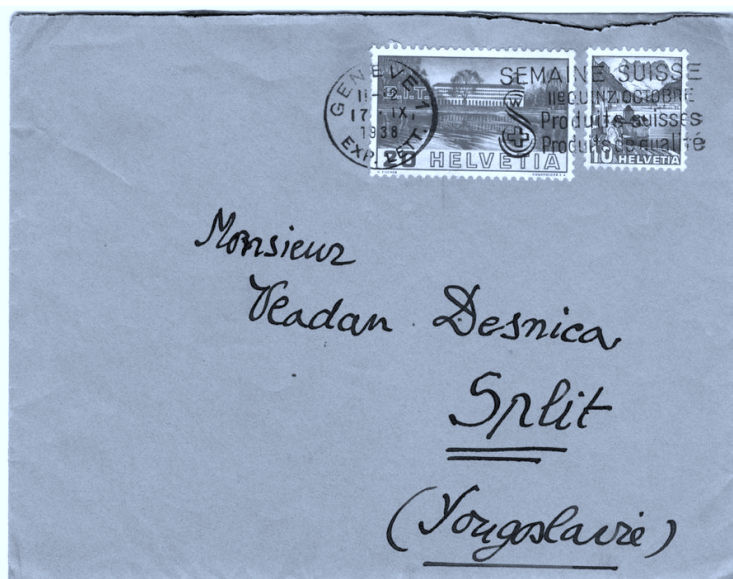 GENEVE 1
11-12
17. IX.
1938
EXP. LETT.
B.I.T.
20 HELVETIA
SEMAINE SUISSE
IIe QUINZ. OCTOBRE
Produits suisses
Produits de qualité
10 HELVETIA
Monsieur
Vladan Desnica
Split
(Yougoslavie)